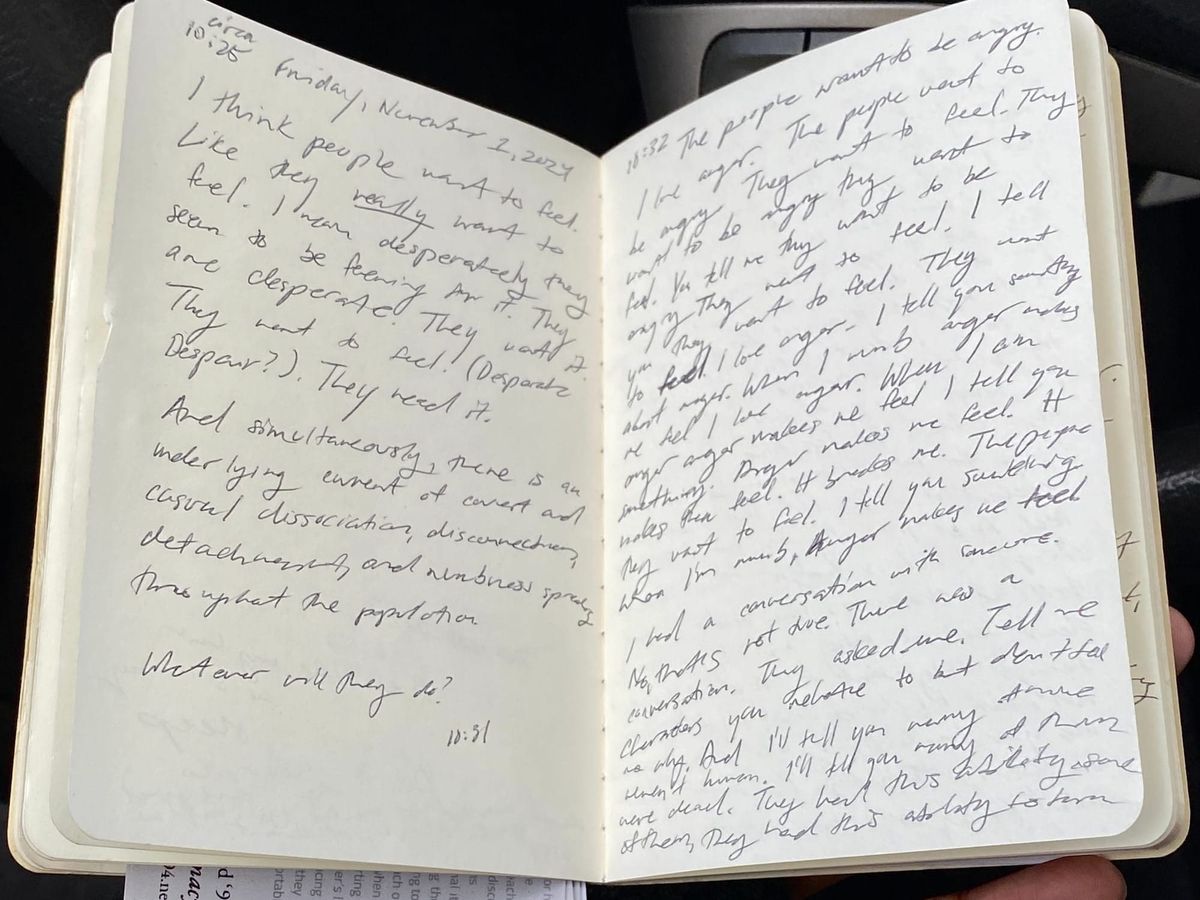 circa
10:25
Friday, November 1, 2024
I think people want to feel.
Like they really want to
feel. I mean desperately they
seem to be for it. They
are desperate. They want it.
They want to feel. (Desperate
Despair?). They need it.
And simultaneously, there is an
underlying current of covert and
casual dissociation, disconnection,
detachment, and numbness spreading
throughout the population
Whatever will they do?
10:31
10:32 The people want to be angry.
I love anger. The people want to
be angry. They want to feel. They
want to be angry they want to
feel. You tell me they want to be
angry They want to feel. I tell
you they want to feel. They want
to feel I love anger. I tell you something
about anger. When I numb anger makes
me feel I love anger. When I am
anger anger makes me feel I tell you
something. Anger makes me feel. It
makes them feel. It me. The people
they want to feel. I tell you something
when I'm numb, Anger makes me feel
I had a conversation with someone.
No, that's not true. There was a
conversation. They asked me. Tell me
characters you relate to but don't
no why. And I'll tell you many
weren't human. I'll tell you many of them
were dead. They had this ability some
of them, they had this ability to